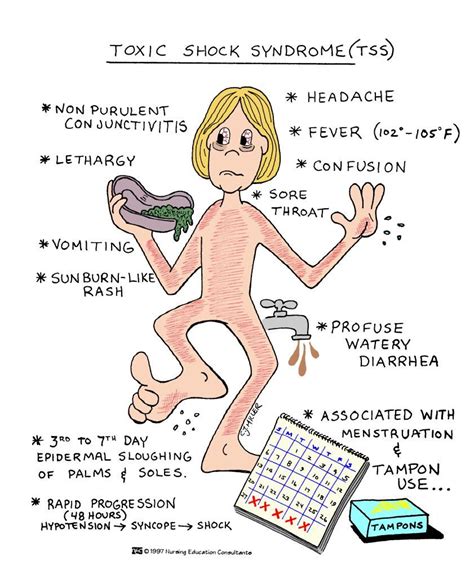 TOXIC SHOCK SYNDROME (TSS)
* NON PURULENT
CONJUNCTIVITIS
* LETHARGY
* VOMITING
* SUNBURN-LIKE
RASH
* HEADACHE
* FEVER (102°-105°F)
* CONFUSION
* SORE
THROAT
* PROFUSE
WATERY
DIARRHEA
* ASSOCIATED WITH
MENSTRUATION
&
TAMPON
USE...
* 3RD TO 7TH DAY
EPIDERMAL SLOUGHING
OF PALMS & SOLES.
* RAPID PROGRESSION
(48 HOURS)
HYPOTENSION → SYNCOPE → SHOCK
S M T W T F S
TAMPONS
©1997 Nursing Education Consultants